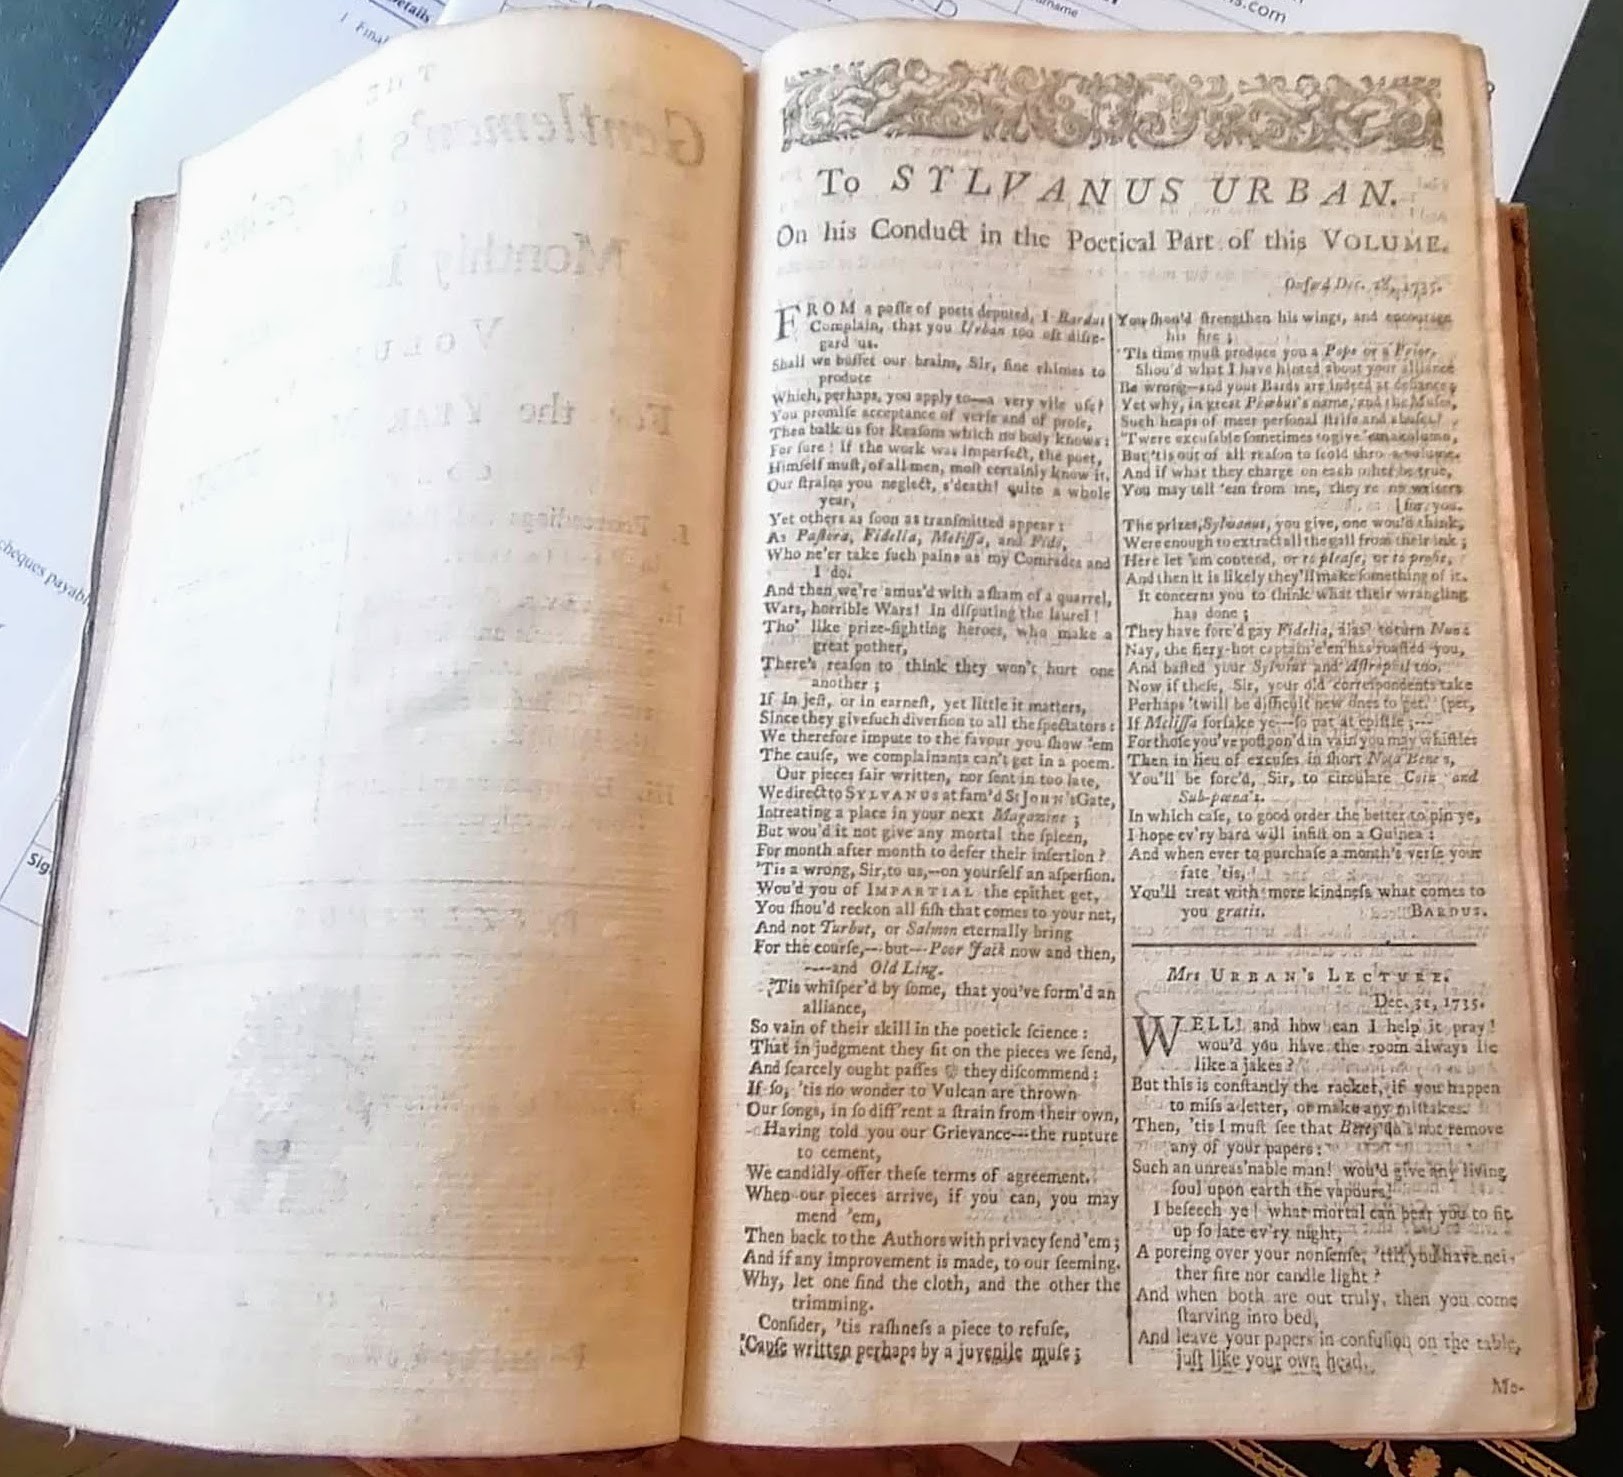 To SYLVANUS URBAN.
On his Conduct in the Poetical Part of this VOLUME.
Oxford Dec. 1735.
FROM a poſſe of poets deputed, I Bardus
Complain, that you Urban too oft diſre-
gard us.
Shall we buffet our brains, Sir, fine rhimes to
produce
Which, perhaps, you apply to—a very vile uſe?
You promiſe acceptance of verſe and of proſe,
Then balk us for Reaſons which no body knows:
For ſure! If the work was imperfect, the poet,
Himſelf muſt, of all men, moſt certainly know it.
Our ſtrains you neglect, s'death! quite a whole
year,
Yet others as ſoon as tranſmitted appear:
As Paſtora, Fidelia, Meliſſa, and Fido,
Who ne'er take ſuch pains as my Comrades and
I do.
And then we're amus'd with a ſham of a quarrel,
Wars, horrible Wars! In diſputing the laurel!
Tho' like prize-fighting heroes, who make a
great pother,
There's reaſon to think they won't hurt one
another;
If In jeſt, or in earneſt, yet little it matters,
Since they give ſuch diverſion to all the ſpectators:
We therefore impute to the favour you ſhow 'em
The cauſe, we complainants can't get in a poem.
Our pieces fair written, nor ſent in too late,
We direct to SYLVANUS at fam'd St JOHN's Gate,
Intreating a place in your next Magazine;
But wou'd it not give any mortal the ſpleen,
For month after month to defer their inſertion?
'Tis a wrong, Sir, to us,—on yourſelf an aſperſion.
Wou'd you of IMPARTIAL the epithet get,
You ſhou'd reckon all fiſh that comes to your net,
And not Turbut, or Salmon eternally bring
For the courſe,—but—Poor Jack now and then,
—and Old Ling.
'Tis whiſper'd by ſome, that you've form'd an
alliance,
So vain of their skill in the poetick ſcience:
That in judgment they ſit on the pieces we ſend,
And ſcarcely ought paſſes they diſcommend:
If ſo, 'tis no wonder to Vulcan are thrown
Our ſongs, in ſo diff'rent a ſtrain from their own,
Having told you our Grievance—the rupture
to cement,
We candidly offer theſe terms of agreement.
When our pieces arrive, if you can, you may
mend 'em,
Then back to the Authors with privacy ſend 'em;
And if any improvement is made, to our ſeeming.
Why, let one find the cloth, and the other the
trimming.
Conſider, 'tis raſhneſs a piece to refuſe,
'Cauſe written perhaps by a juvenile muſe;
You ſhou'd ſtrengthen his wings, and encourage
his fire;
'Tis time muſt produce you a Pope or a Prior,
Shou'd what I have hinted about your alliance
Be wrong—and your Bards are indeed at defiance;
Yet why, in great Phœbus's name, and the Muſes,
Such heaps of meer perſonal ſtrife and abuſes?
'Twere excuſable ſometimes to give 'em a column,
But 'tis out of all reaſon to ſcold thro' a volume.
And if what they charge on each other be true,
You may tell 'em from me, they're no writers
[for you.
The prizes, Sylvanus, you give, one wou'd think,
Were enough to extract all the gall from their ink;
Here let 'em contend, or to pleaſe, or to profit,
And then it is likely they'll make ſomething of it.
It concerns you to think what their wrangling
has done;
They have forc'd gay Fidelia, alas! to turn Nun:
Nay, the fiery-hot captain e'en has roaſted you,
And baſted your Sylvius and Aſtrophil too.
Now if theſe, Sir, your old correſpondents take
Perhaps 'twill be difficult new ones to get. [pet,
If Meliſſa forſake ye—ſo pat at epiſtle;—
For thoſe you've poſtpon'd in vain you may whiſtle:
Then in lieu of excuſes in ſhort Nota Bene's,
You'll be forc'd, Sir, to circulate Coin and
Sub-pœna's.
In which caſe, to good order the better to pin ye,
I hope ev'ry bard will inſiſt on a Guinea:
And when ever to purchaſe a month's verſe your
fate 'tis,
You'll treat with more kindneſs what comes to
you gratis. BARDUS.
Mrs URBAN's LECTURE.
Dec. 31, 1735.
WELL! and how can I help it pray!
wou'd you have the room always lie
like a jakes?
But this is conſtantly the racket, if you happen
to miſs a letter, or make any miſtakes.
Then, 'tis I muſt ſee that Betty do's not remove
any of your papers:
Such an unreas'nable man! wou'd give any living
ſoul upon earth the vapours!
I beſeech ye! what mortal can bear you to ſit
up ſo late ev'ry night,
A poreing over your nonſenſe, 'till you have nei-
ther fire nor candle light?
And when both are out truly, then you come
ſtarving into bed,
And leave your papers in confuſion on the table,
juſt like your own head.
Mo-